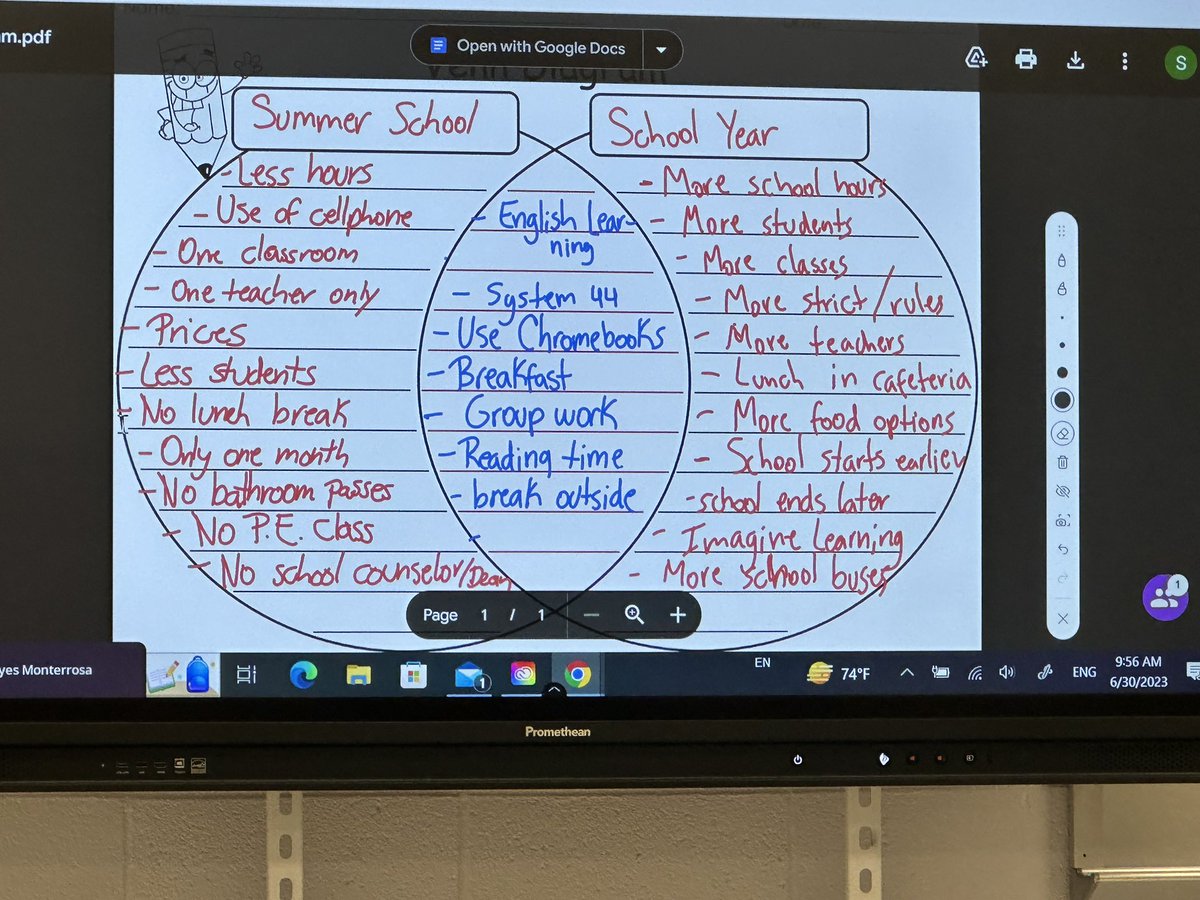 m.pdf
Open with Google Docs
Venn Diagram
S
Summer School
School Year
-Less hours
- Use of cellphone
- One classroom
- One teacher only
- Prices
- Less students
- No lunch break
- Only one month
- No bathroom passes
- No P.E. Class
- No school counselor/Dean
- English Lear-
ning
- System 44
- Use Chromebooks
- Breakfast
- Group work
- Reading time
- break outside
-
- More school hours
- More students
- More classes
- More strict/rules
- More teachers
- Lunch in cafeteria
- More food options
- School starts earlier
-school ends later
- Imagine Learning
- More school buses
Page 1 / 1
1
yes Monterrosa
1
EN
74°F
ENG
9:56 AM
6/30/2023
Promethean